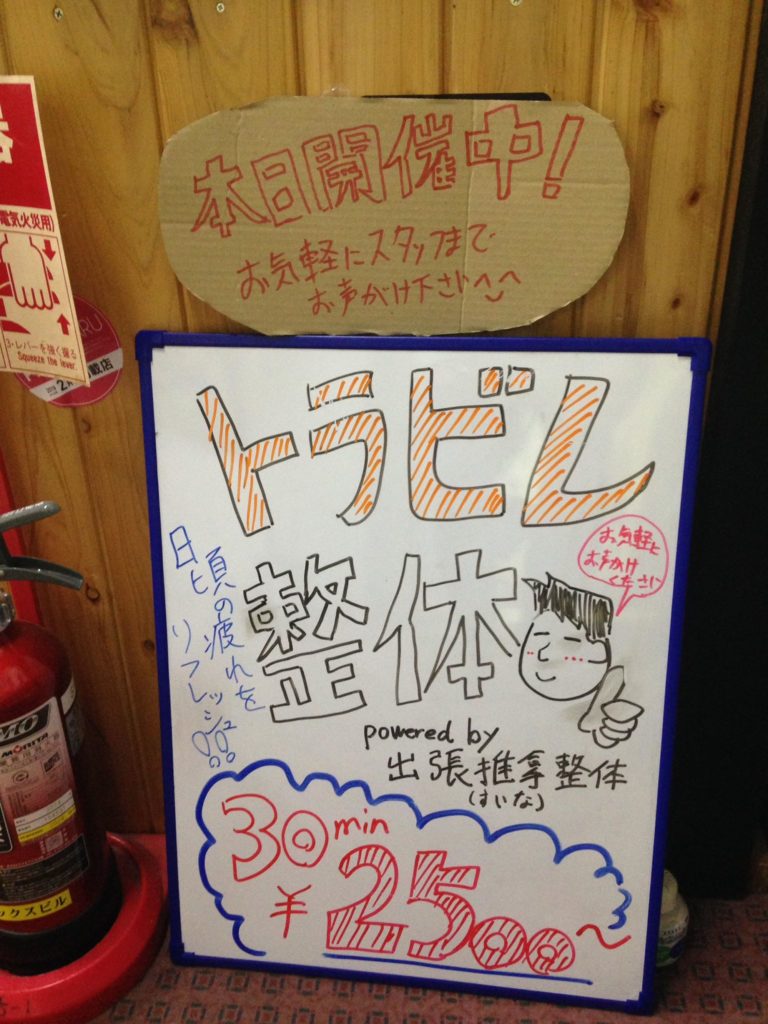 本日開催中!
お気軽にスタッフまで
お声がけ下さい^^
トラビレ
整体
お気軽に
お声がけ
ください
日頃の疲れを
リフレッシュ!!
powered by
出張推拿整体
(すいな)
30min
¥2500~
電気火災用)
3・レバーを強く握る
Squeeze the lever.
MORITA
ックスビル